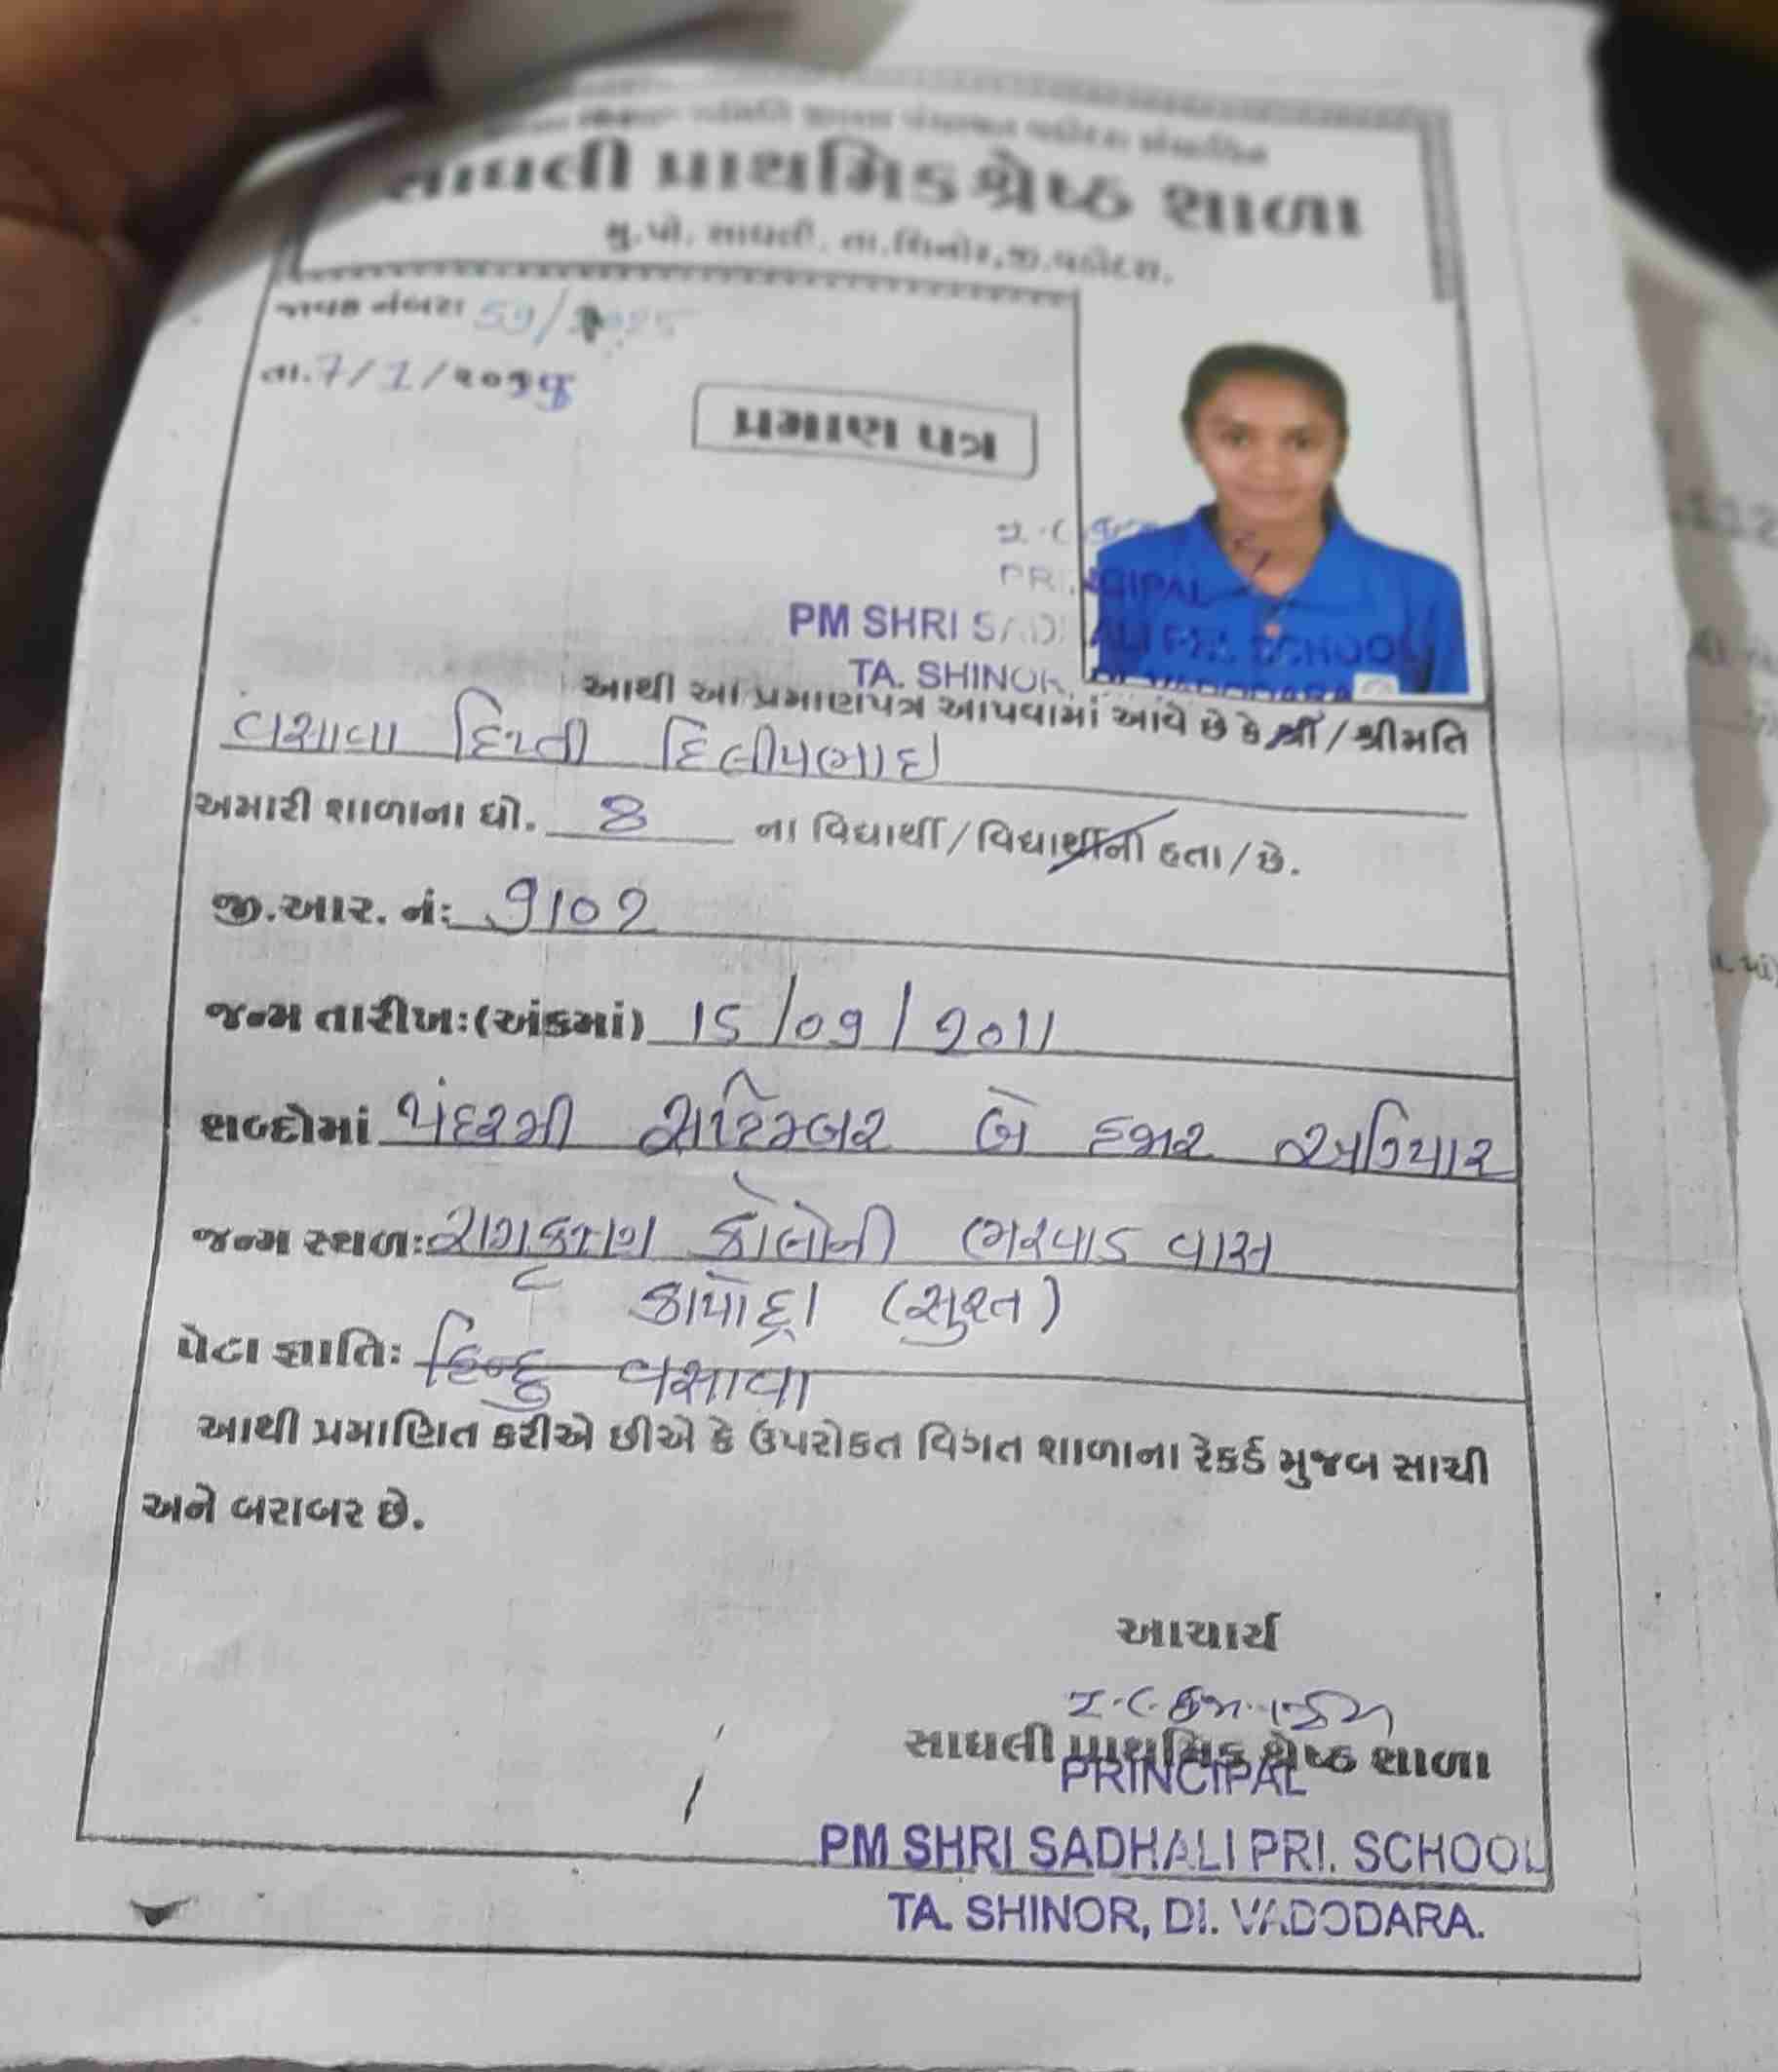 સાધલી પ્રાથમિક શ્રેષ્ઠ શાળા
મુ.પો. સાધલી, તા.શિનોર,જી.વડોદરા.
જાવક નંબરઃ 59/2025
તા.7/1/૨૦
પ્રમાણ પત્ર
PRINCIPAL
PM SHRI SADHALI PRI. SCHOOL
TA. SHINOR, DI. VADODARA
આથી આ પ્રમાણપત્ર આપવામાં આવે છે કે શ્રી/શ્રીમતિ
વસાવા દિપ્તી દિલીપભાઇ
અમારી શાળાના ધો. 8 ના વિદ્યાર્થી/વિદ્યાર્થીની હતા/છે.
જી.આર. નંઃ 9102
જન્મ તારીખઃ(અંકમાં) 15/09/2011
શબ્દોમાં પંદરમી સપ્ટેમ્બર બે હજાર અગિયાર
જન્મ સ્થળઃ કોલોની ભરવાડ વાસ
કાપોદ્રા (સુરત)
પેટા જ્ઞાતિઃ હિન્દુ વસાવા
આથી પ્રમાણિત કરીએ છીએ કે ઉપરોકત વિગત શાળાના રેકર્ડ મુજબ સાચી
અને બરાબર છે.
આચાર્ય
સાધલી પ્રાથમિક શ્રેષ્ઠ શાળા
PRINCIPAL
PM SHRI SADHALI PRI. SCHOOL
TA. SHINOR, DI. VADODARA.